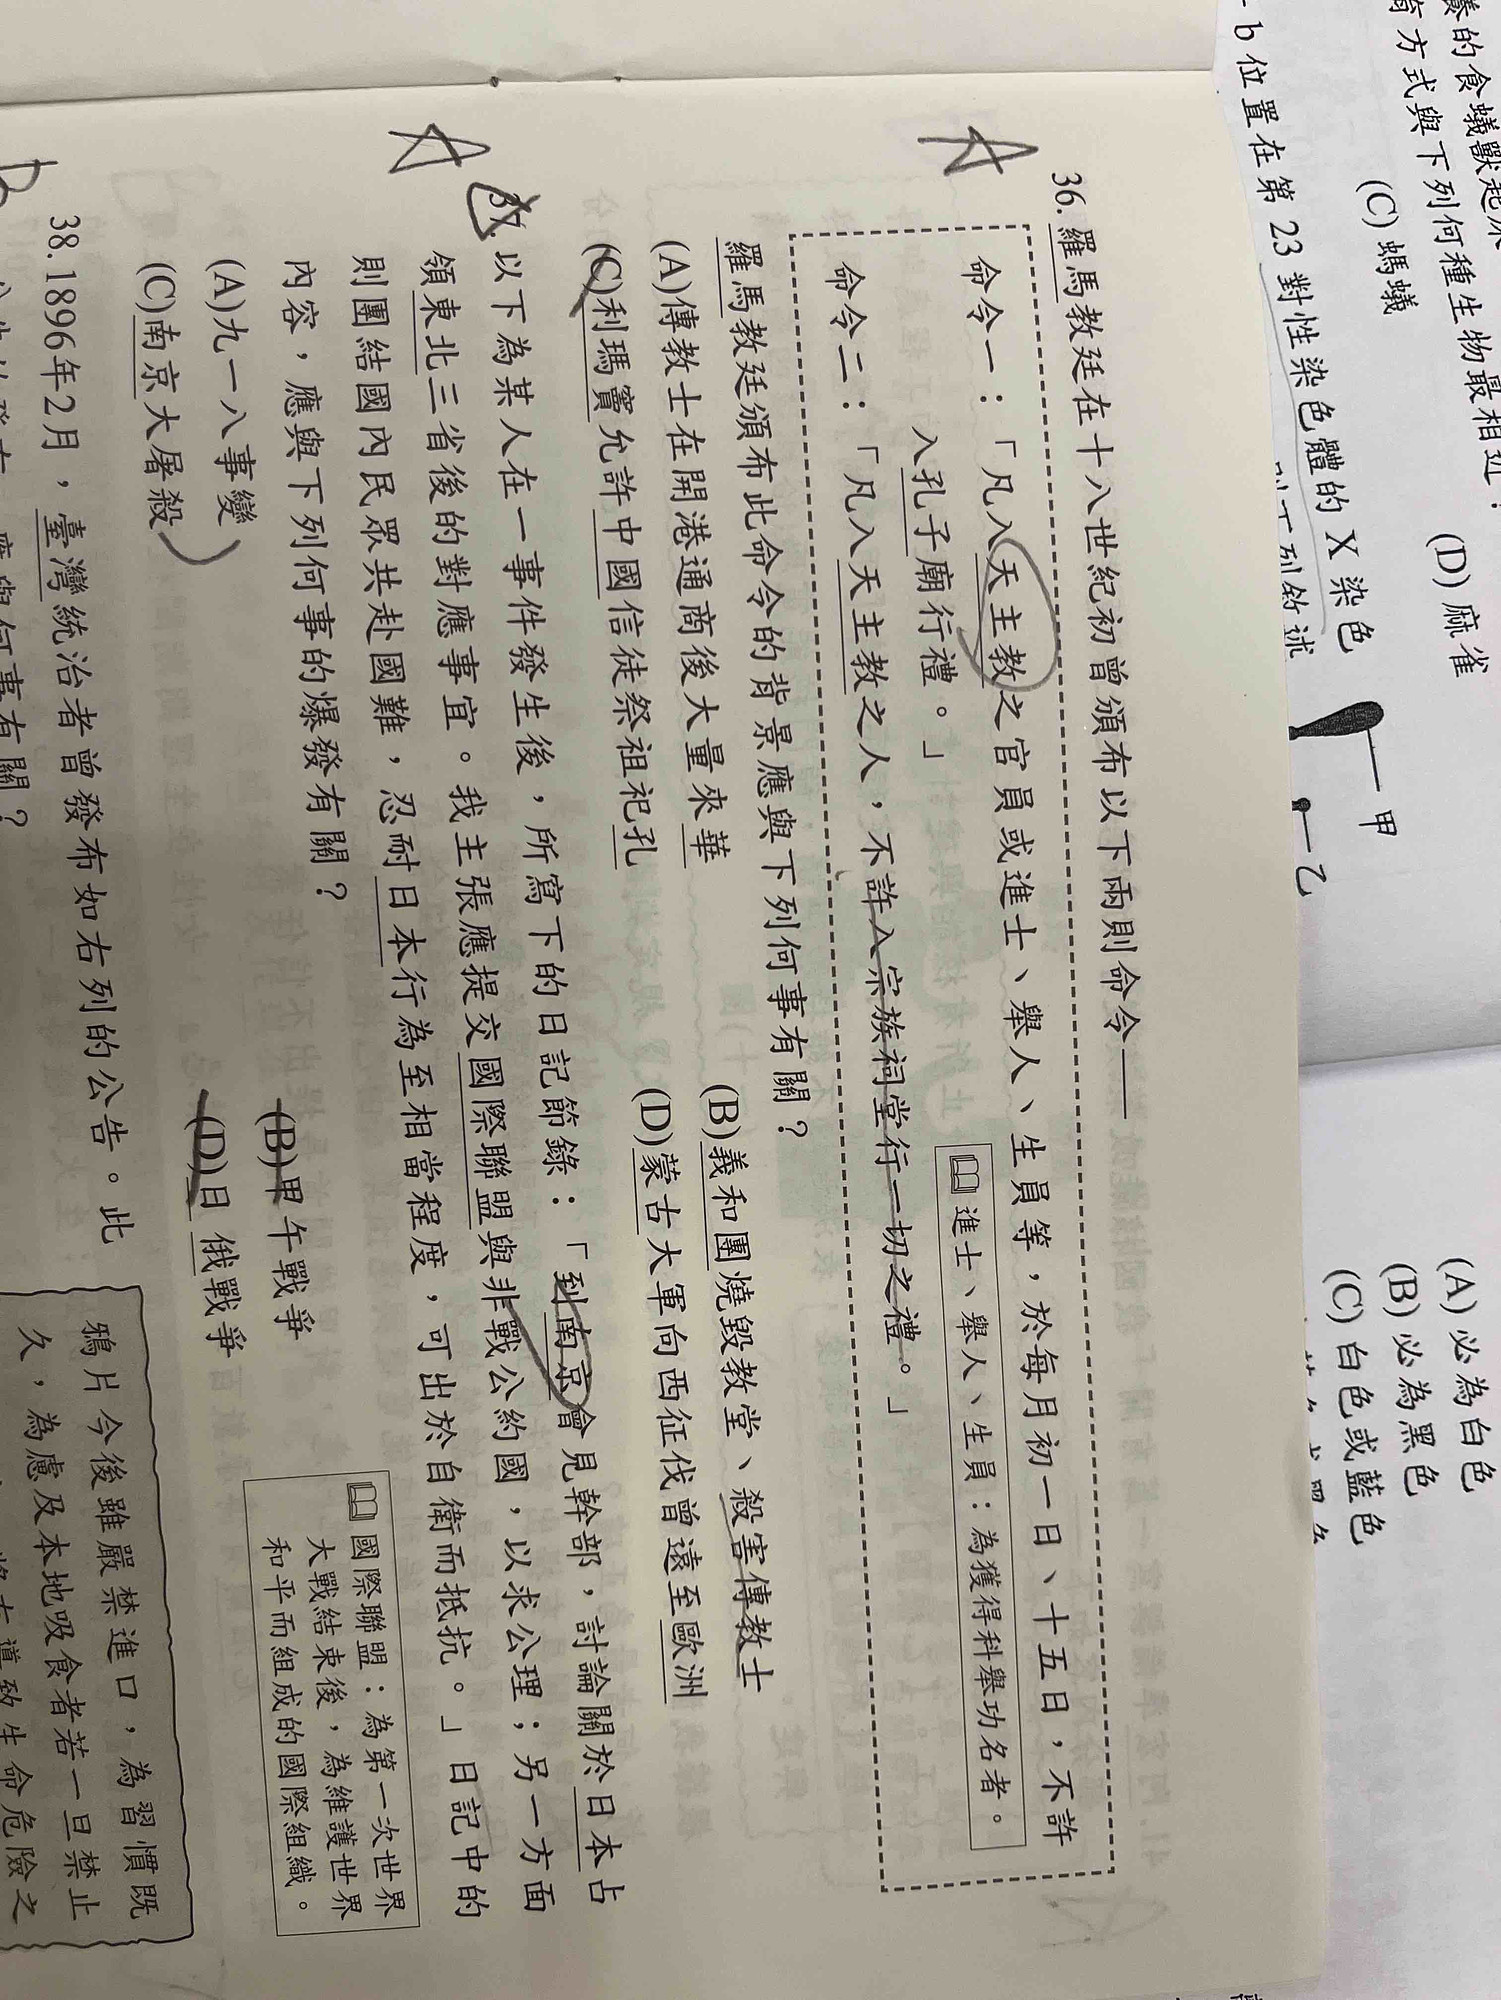 養的食蟻獸起源
育方式與下列何種生物最相近？
(C) 螞蟻
(D) 麻雀
b 位置在第 23 對性染色體的 X 染色
甲
乙
(A) 必為白色
(B) 必為黑色
(C) 白色或藍色
A
36.羅馬教廷在十八世紀初曾頒布以下兩則命令——
命令一：「凡入天主教之官員或進士、舉人、生員等，於每月初一日、十五日，不許
入孔子廟行禮。」
進士、舉人、生員：為獲得科舉功名者。
命令二：「凡入天主教之人，不許入宗族祠堂行一切之禮。」
羅馬教廷頒布此命令的背景應與下列何事有關？
(A)傳教士在開港通商後大量來華
(B)義和團燒毀教堂、殺害傳教士
(C)利瑪竇允許中國信徒祭祖祀孔
(D)蒙古大軍向西征伐曾遠至歐洲
A
37.以下為某人在一事件發生後，所寫下的日記節錄：「到南京會見幹部，討論關於日本占
領東北三省後的對應事宜。我主張應提交國際聯盟與非戰公約國，以求公理；另一方面
則團結國內民眾共赴國難，忍耐日本行為至相當程度，可出於自衛而抵抗。」日記中的
內容，應與下列何事的爆發有關？
國際聯盟：為第一次世界
大戰結束後，為維護世界
和平而組成的國際組織。
(A)九一八事變
(B)甲午戰爭
(C)南京大屠殺
(D)日俄戰爭
38.1896年2月，臺灣統治者曾發布如右列的公告。此
鴉片今後雖嚴禁進口，為習慣既
久，為慮及本地吸食者若一旦禁止
導致生命危險之